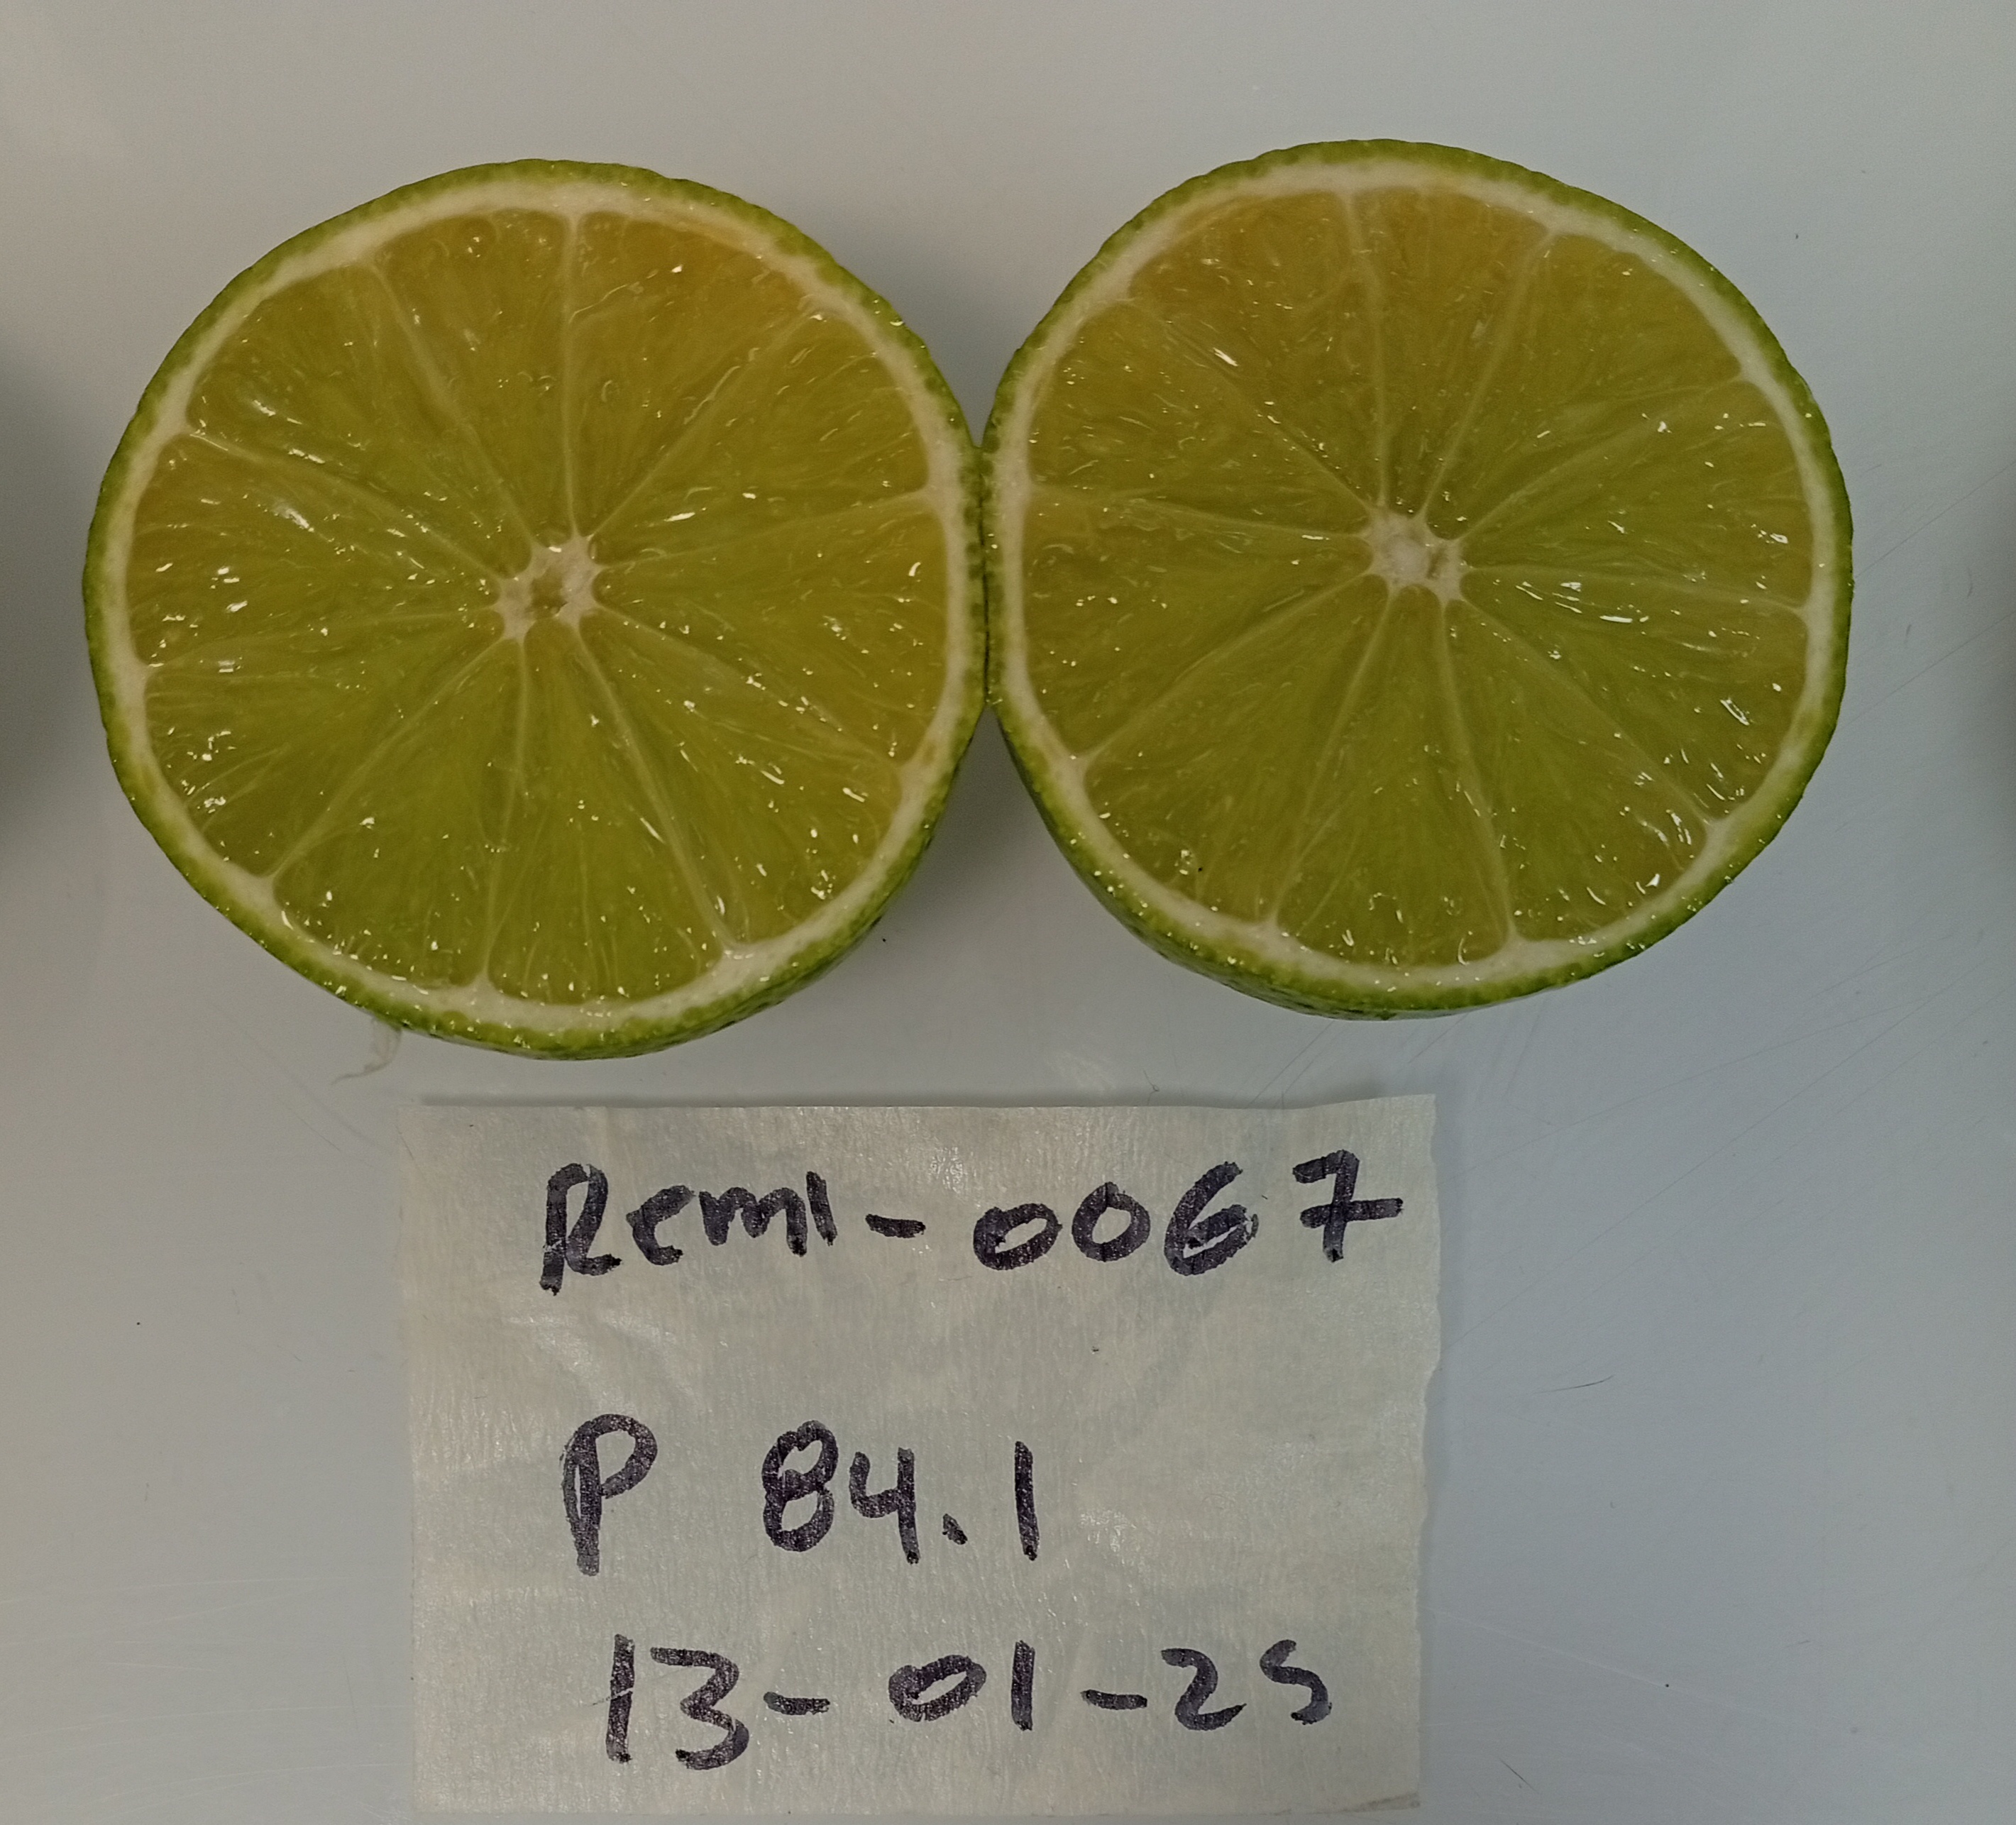 Remi-0067
P 84.1
13-01-25